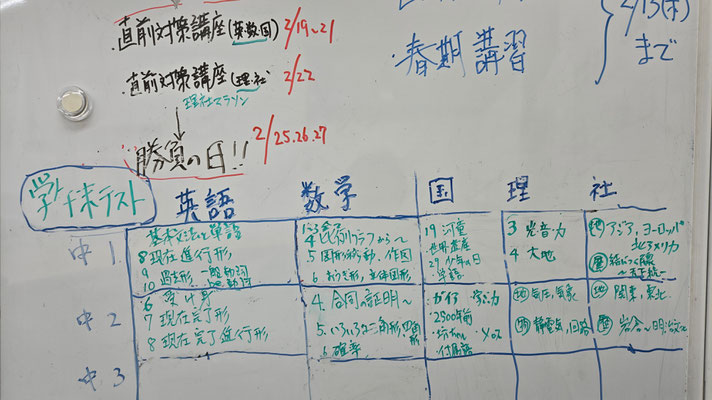 直前対策講座(英数国) 2/19~21
直前対策講座(理・社) 2/22
理社マラソン
勝負の日!! 2/25.26.27
春期講習
2/13(木)
まで
学年末テスト
英語 数学 国 理 社
中1
基本文法と単語
8 現在進行形
9 過去形 一般動詞
10 be動詞
4 比例のグラフから~
5 図形の移動、作図
6 おうぎ形、立体図形
19 河童
世界遺産
29 少年の日
3 光・音・力
4 大地
地 アジア、ヨーロッパ
北アメリカ
中2
6 受け身
7 現在完了形
8 現在完了進行形
4. 合同の証明~
5. いろいろな三角形、四角形
6 確率
2500年前
付属語
地 気圧、気象
静電気、回路
地 関東、東北
中3